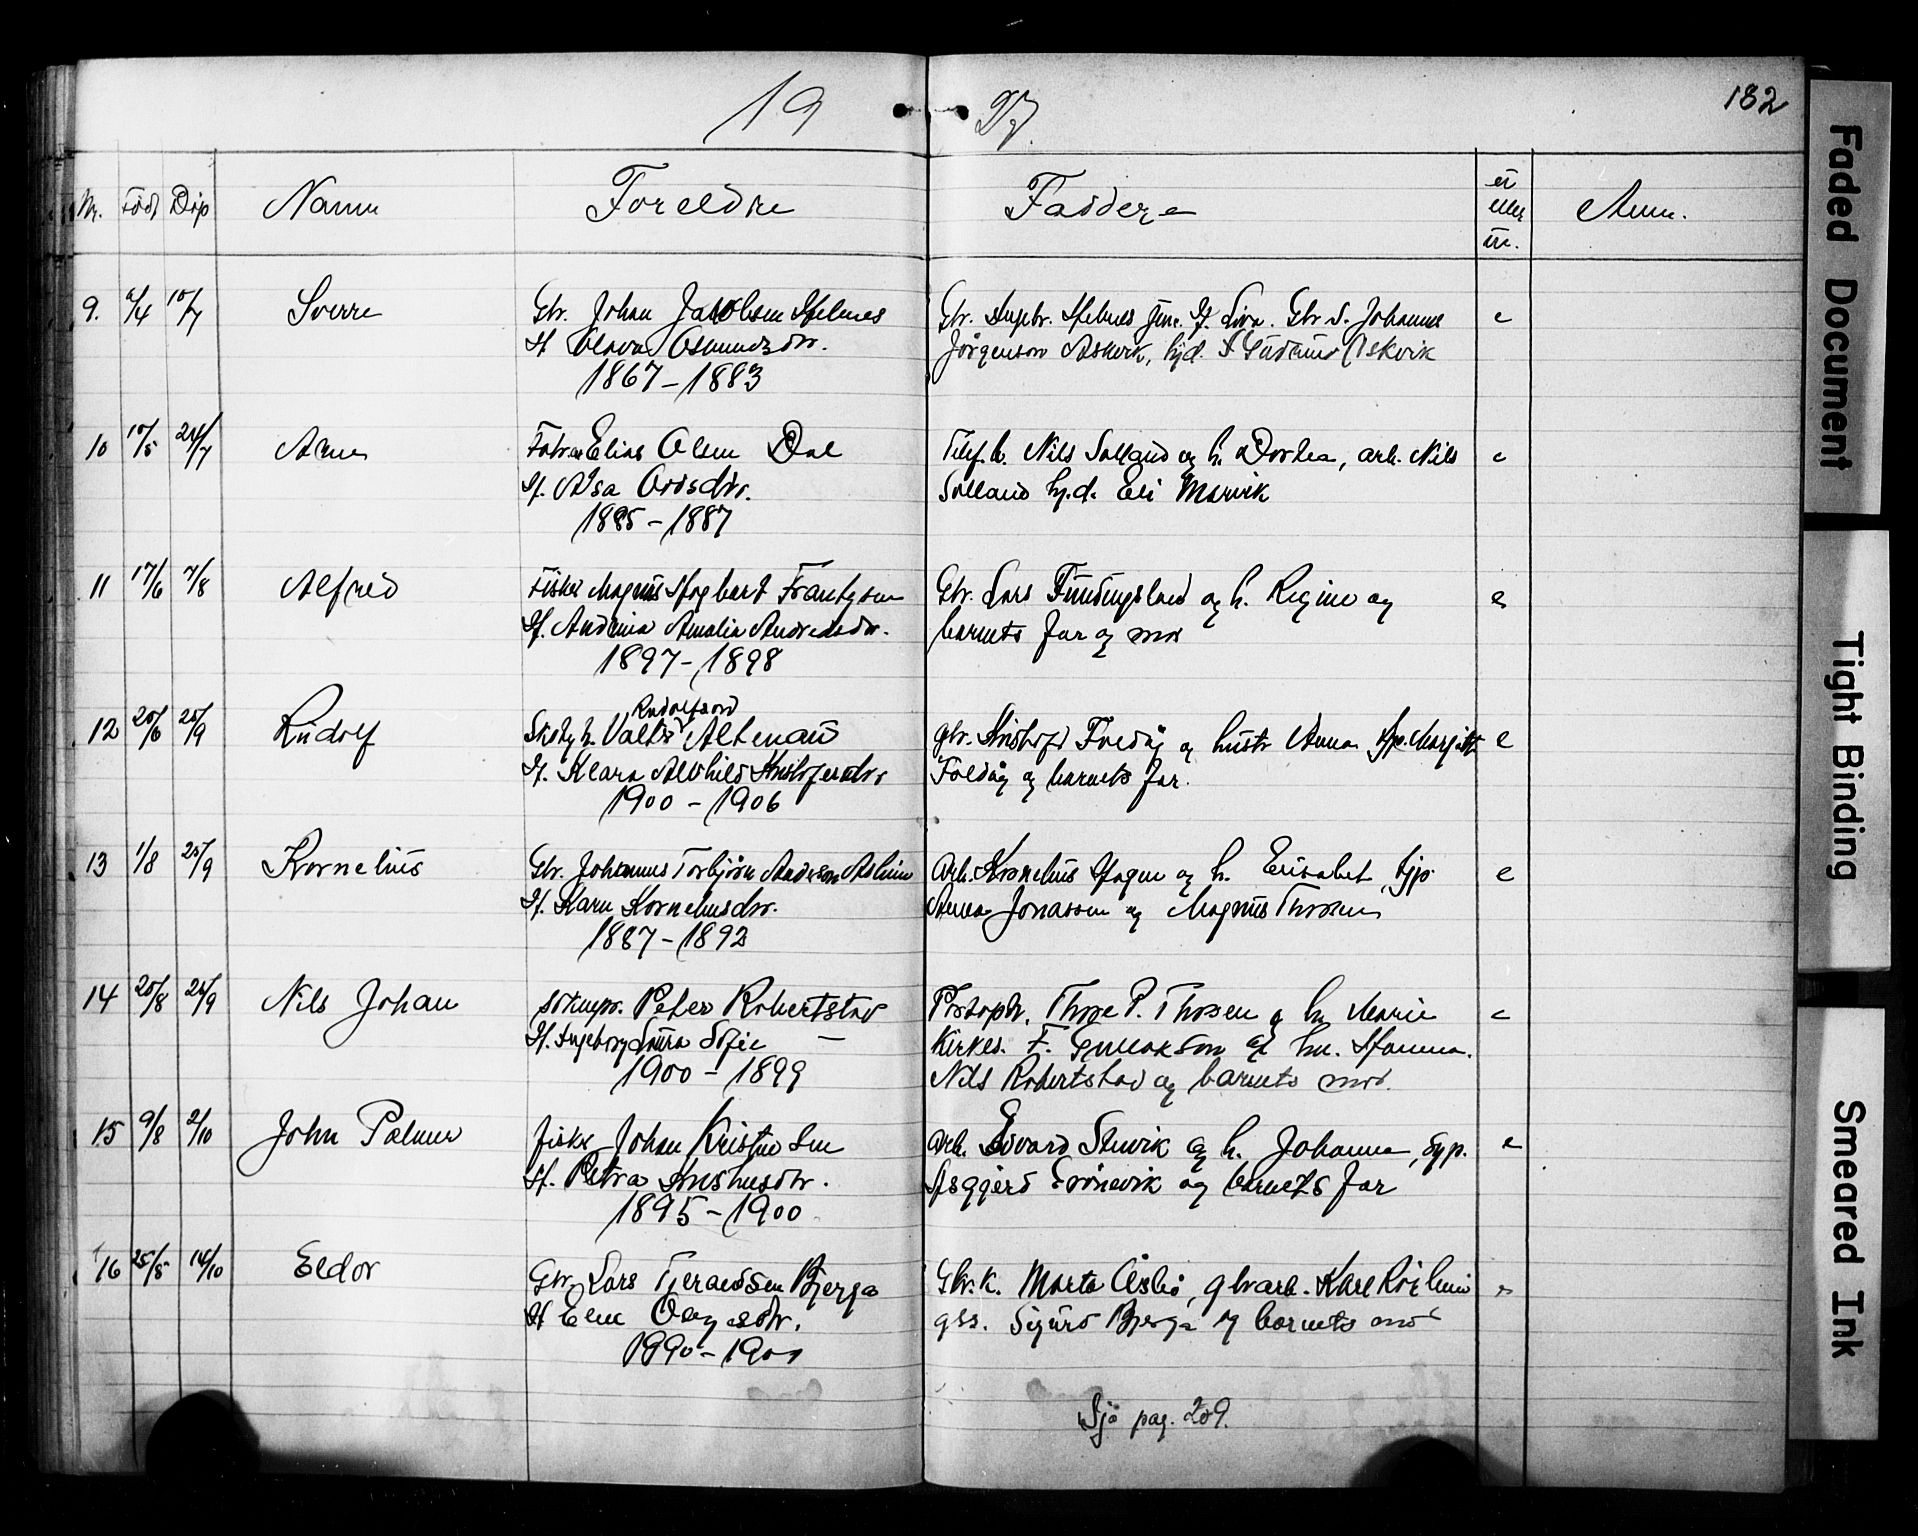 19 27.
182
Nr. Född Döp Namn Foreldre Faddere ei eller ue. Anm.
9. 2/4 10/7 Sverre Gbr. Johan Jacobsen Helnes
H Olava Osmundsdtr.
1867 – 1883
Gbr. Helnes jun. H. Liva. Gbr. S. Johannes e
Jörgenson Askvik, hjd. Askvik
10 10/5 24/7 Arne Elias Olsen Dal
H. Åsa Ordsdtr.
1885 – 1887
Nils Solland og h. Dorthea, arb. Nils e
Solland hj.d. Eli Marvik
11 17/6 7/8 Alfred Fisker Magnus Hagbart Frantzsen
H. Andrina Amalia Andreasdtr.
1897 – 1898
Gbr. Lars Tundingsland og h. Regine og e
barnets far og mor
12 20/6 25/9 Rudolf Rudolfson
Valter Altenau
H. Klara Alvhild Kristofersdtr
1900 – 1906
gbr. Kristofer Foldöy og hustr Anna hjp. Margit e
Foldöy og barnets far.
13 1/8 25/9 Kornelius Gbr. Johannes Torbjörn Anderson Asheim
H. Karn Kornelusdtr.
1887 – 1892
Arb. Kornelius Hagen og h. Elisabet hjp. e
Anna Jonassen og Magnus Thorsen
14 20/8 25/9 Nils Johan Peter Robertstad
H. Ingeborg Laura Sofie —
1900 – 1899
Postopn. Thore P. Thorsen og hu Marie e
Kirkes. F. Gullakson og hu. Hanna.
Nils Robertstad og barnets mor.
15 9/8 2/10 John Palmer fisker Johan Kristensen
H. Petra Knshusdtr.
1895 – 1900
arb. Edvard Stuvik og h. Johanne, hjp. e
Asgjerd Frönevik og barnets far
16 25/8 14/10 Eldor Gbr. Lars Tjeraldsen Bjerga
H Eline Olaysdtr.
1890 – 1901
Gbr.k. Marta Åsbö, gbrarb. Karl Röilun e
gss. Sigurd Bjerga og barnets mor
Sjå pag. 209.
Faded Document
Tight Binding
Smeared Ink